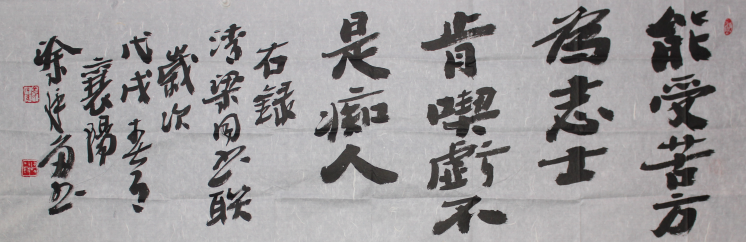 能受苦方
為志士
肯喫虧不
是痴人
右錄
清梁同書联
歲次
戊戌春月
襄陽
徐書